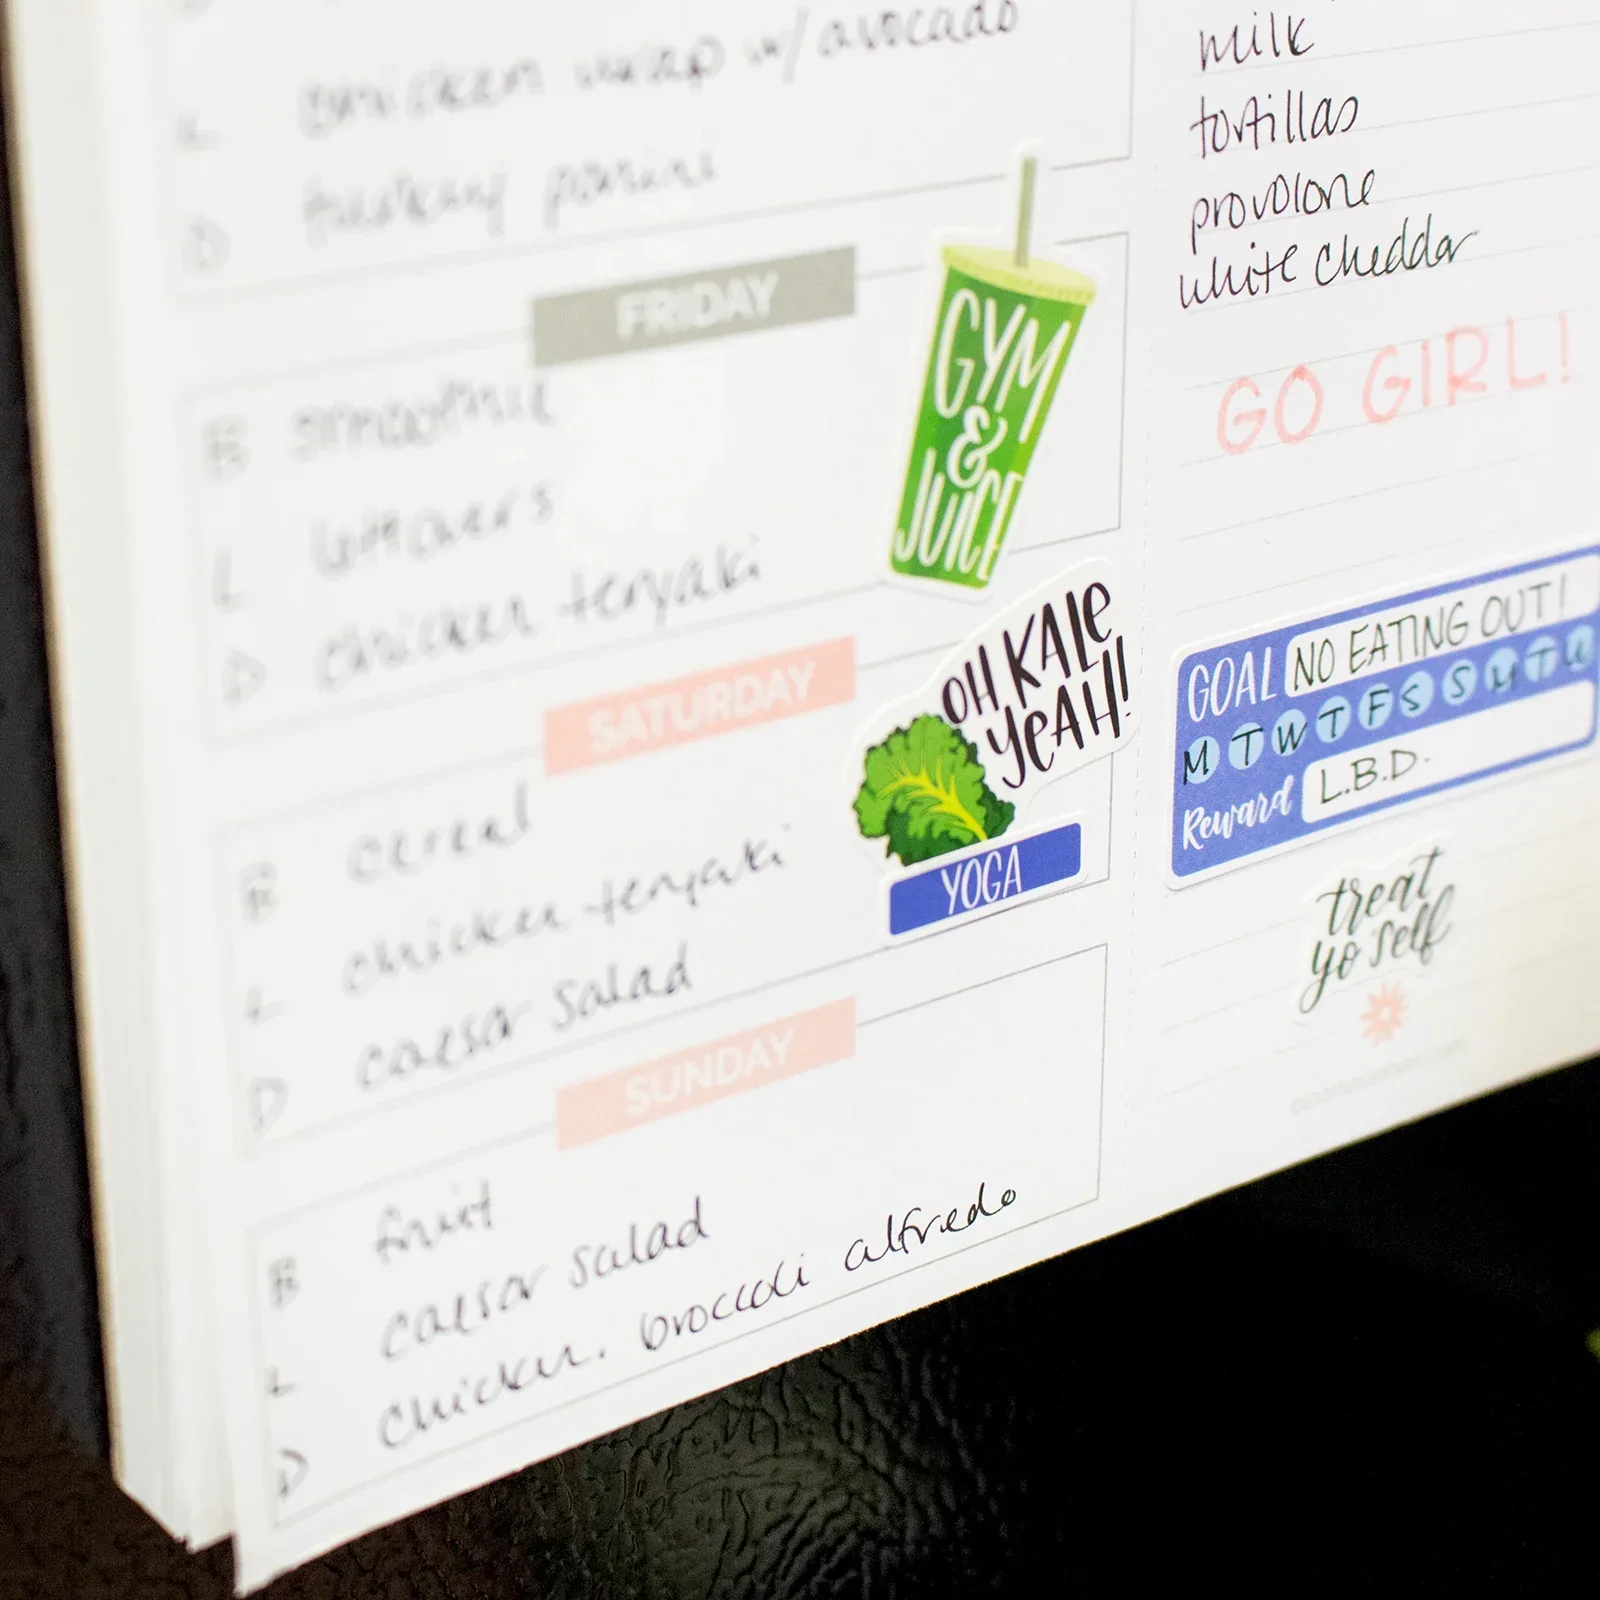 L chicken wrap w/ avocado
D turkey panini
FRIDAY
B smoothie
L leftovers
D chicken teryaki
GYM
&
JUICE
SATURDAY
B cereal
L chicken teryaki
D caesar salad
OH KALE
YEAH!
YOGA
SUNDAY
B fruit
L caesar salad
D chicken. broccoli alfredo
milk
tortillas
provolone
white cheddar
GO GIRL!
GOAL NO EATING OUT!
M T W T F S S M T W
Reward L.B.D.
treat
yo' self